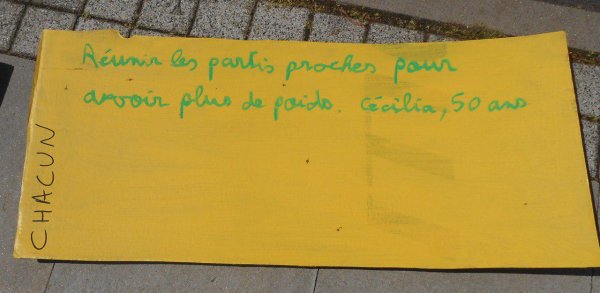 Réunir les partis proches pour
avoir plus de poids. Cécilia, 50 ans
CHACUN